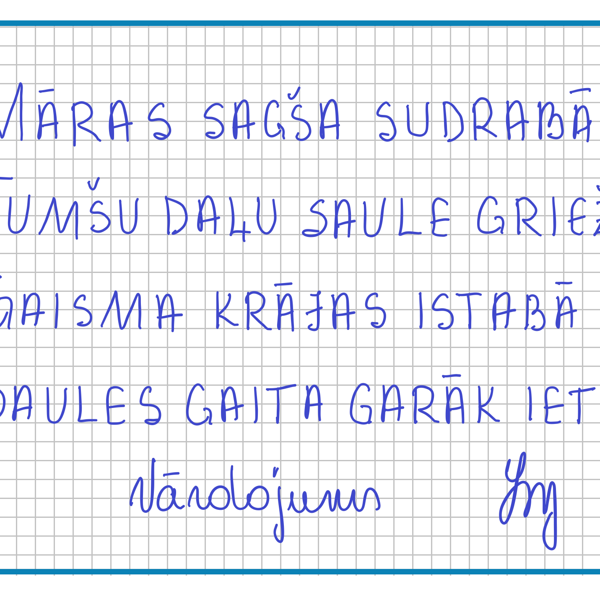 MĀRAS SAGŠA SUDRABĀ
TUMŠU DAĻU SAULE GRIEŽ
GAISMA KRĀJAS ISTABĀ
SAULES GAITA GARĀK IET
Vārdojums